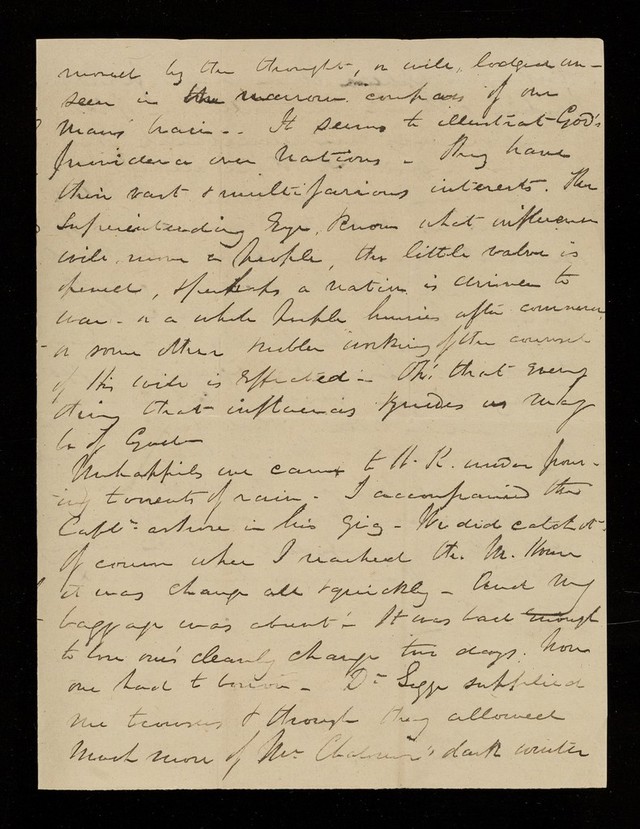 moved by the thought, or will, lodged un-
seen in the narrow compass of one
man's brain -. It seems to illustrate God's
Providence over Nations - They have
their vast & multifarious interests. The
Superintending Eye, knows what influence
will move a People, the little valve is
opened, & perhaps a nation is driven to
war - or a whole People hurries after commerce
or some other nobler working of the counsel
of His will is effected - Oh! that every
thing that influences & guides us may
be of God -
Unhappily we came to H. K. under pour-
ing torrents of rain - I accompanied the
Capt: ashore in his gig - We did catch it -
Of course when I reached the M. House
it was change all & quickly - And my
baggage was absent! It was bad enough
to lose one's cleanly change two days. Now
one had to borrow - Dr Legge supplied
me trousers & though they allowed
much more of Mr dark outer